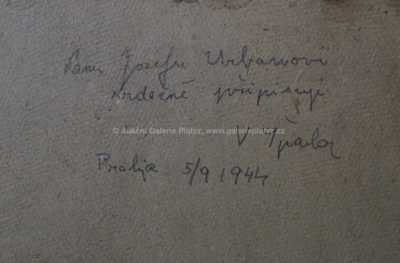 Panu Josefu Urbanovi
srdečně připisuji
© Aukční Galerie Platýz, www.galerieplatyz.cz
Špála
Praha 5/9 1944